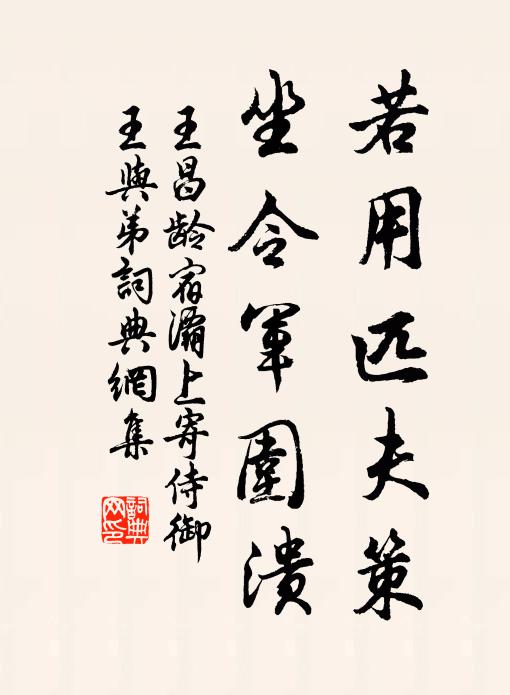 若用匹夫策
坐令軍圍潰
王昌齡宿灞上寄侍御
王璵弟詞典網集
詞典
网印